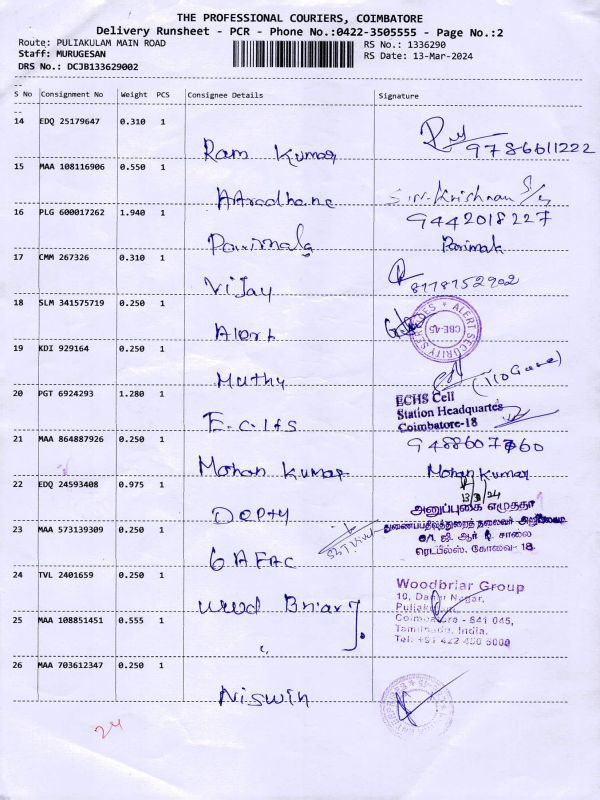 THE PROFESSIONAL COURIERS, COIMBATORE
Delivery Runsheet - PCR - Phone No.:0422-3505555 - Page No.:2
Route: PULIAKULAM MAIN ROAD
RS No.: 1336290
Staff: MURUGESAN
RS Date: 13-Mar-2024
DRS No.: DCJB133629002
S No Consignment No Weight PCS Consignee Details Signature
14 EDQ 25179647 0.310 1
Ram Kumar 9786611222
15 MAA 108116906 0.550 1
AAradhana
16 PLG 600017262 1.940 1 9442018227
Parimala Parimala
17 CMM 267326 0.310 1
Vijay 8778752902
18 SLM 341575719 0.250 1
Alert ALERT SECURITY SERVICES CBE-45
19 KDI 929164 0.250 1
Muthu
20 PGT 6924293 1.280 1
E.C.H.S ECHS Cell
Station Headquartes
Coimbatore-18
21 MAA 864887926 0.250 1 9488607360
Mohan Kumar Mohan Kumar
22 EDQ 24593408 0.975 1 13/3/24
DEPTY
அனுப்புகை எழுத்தர்
23 MAA 573139309 0.250 1
ஜி. ஆர் சாலை
ரெட்பீல்ஸ். கோவை- 18.
24 TVL 2401659 0.250 1
Wood Briar Woodbriar Group
10, Damu Nagar,
Puliakulam
25 MAA 108851451 0.555 1 Coimbatore - 641 045,
Tamilnadu, India.
" Tel: +91 422 450 5000
26 MAA 703612347 0.250 1
Niswin
24